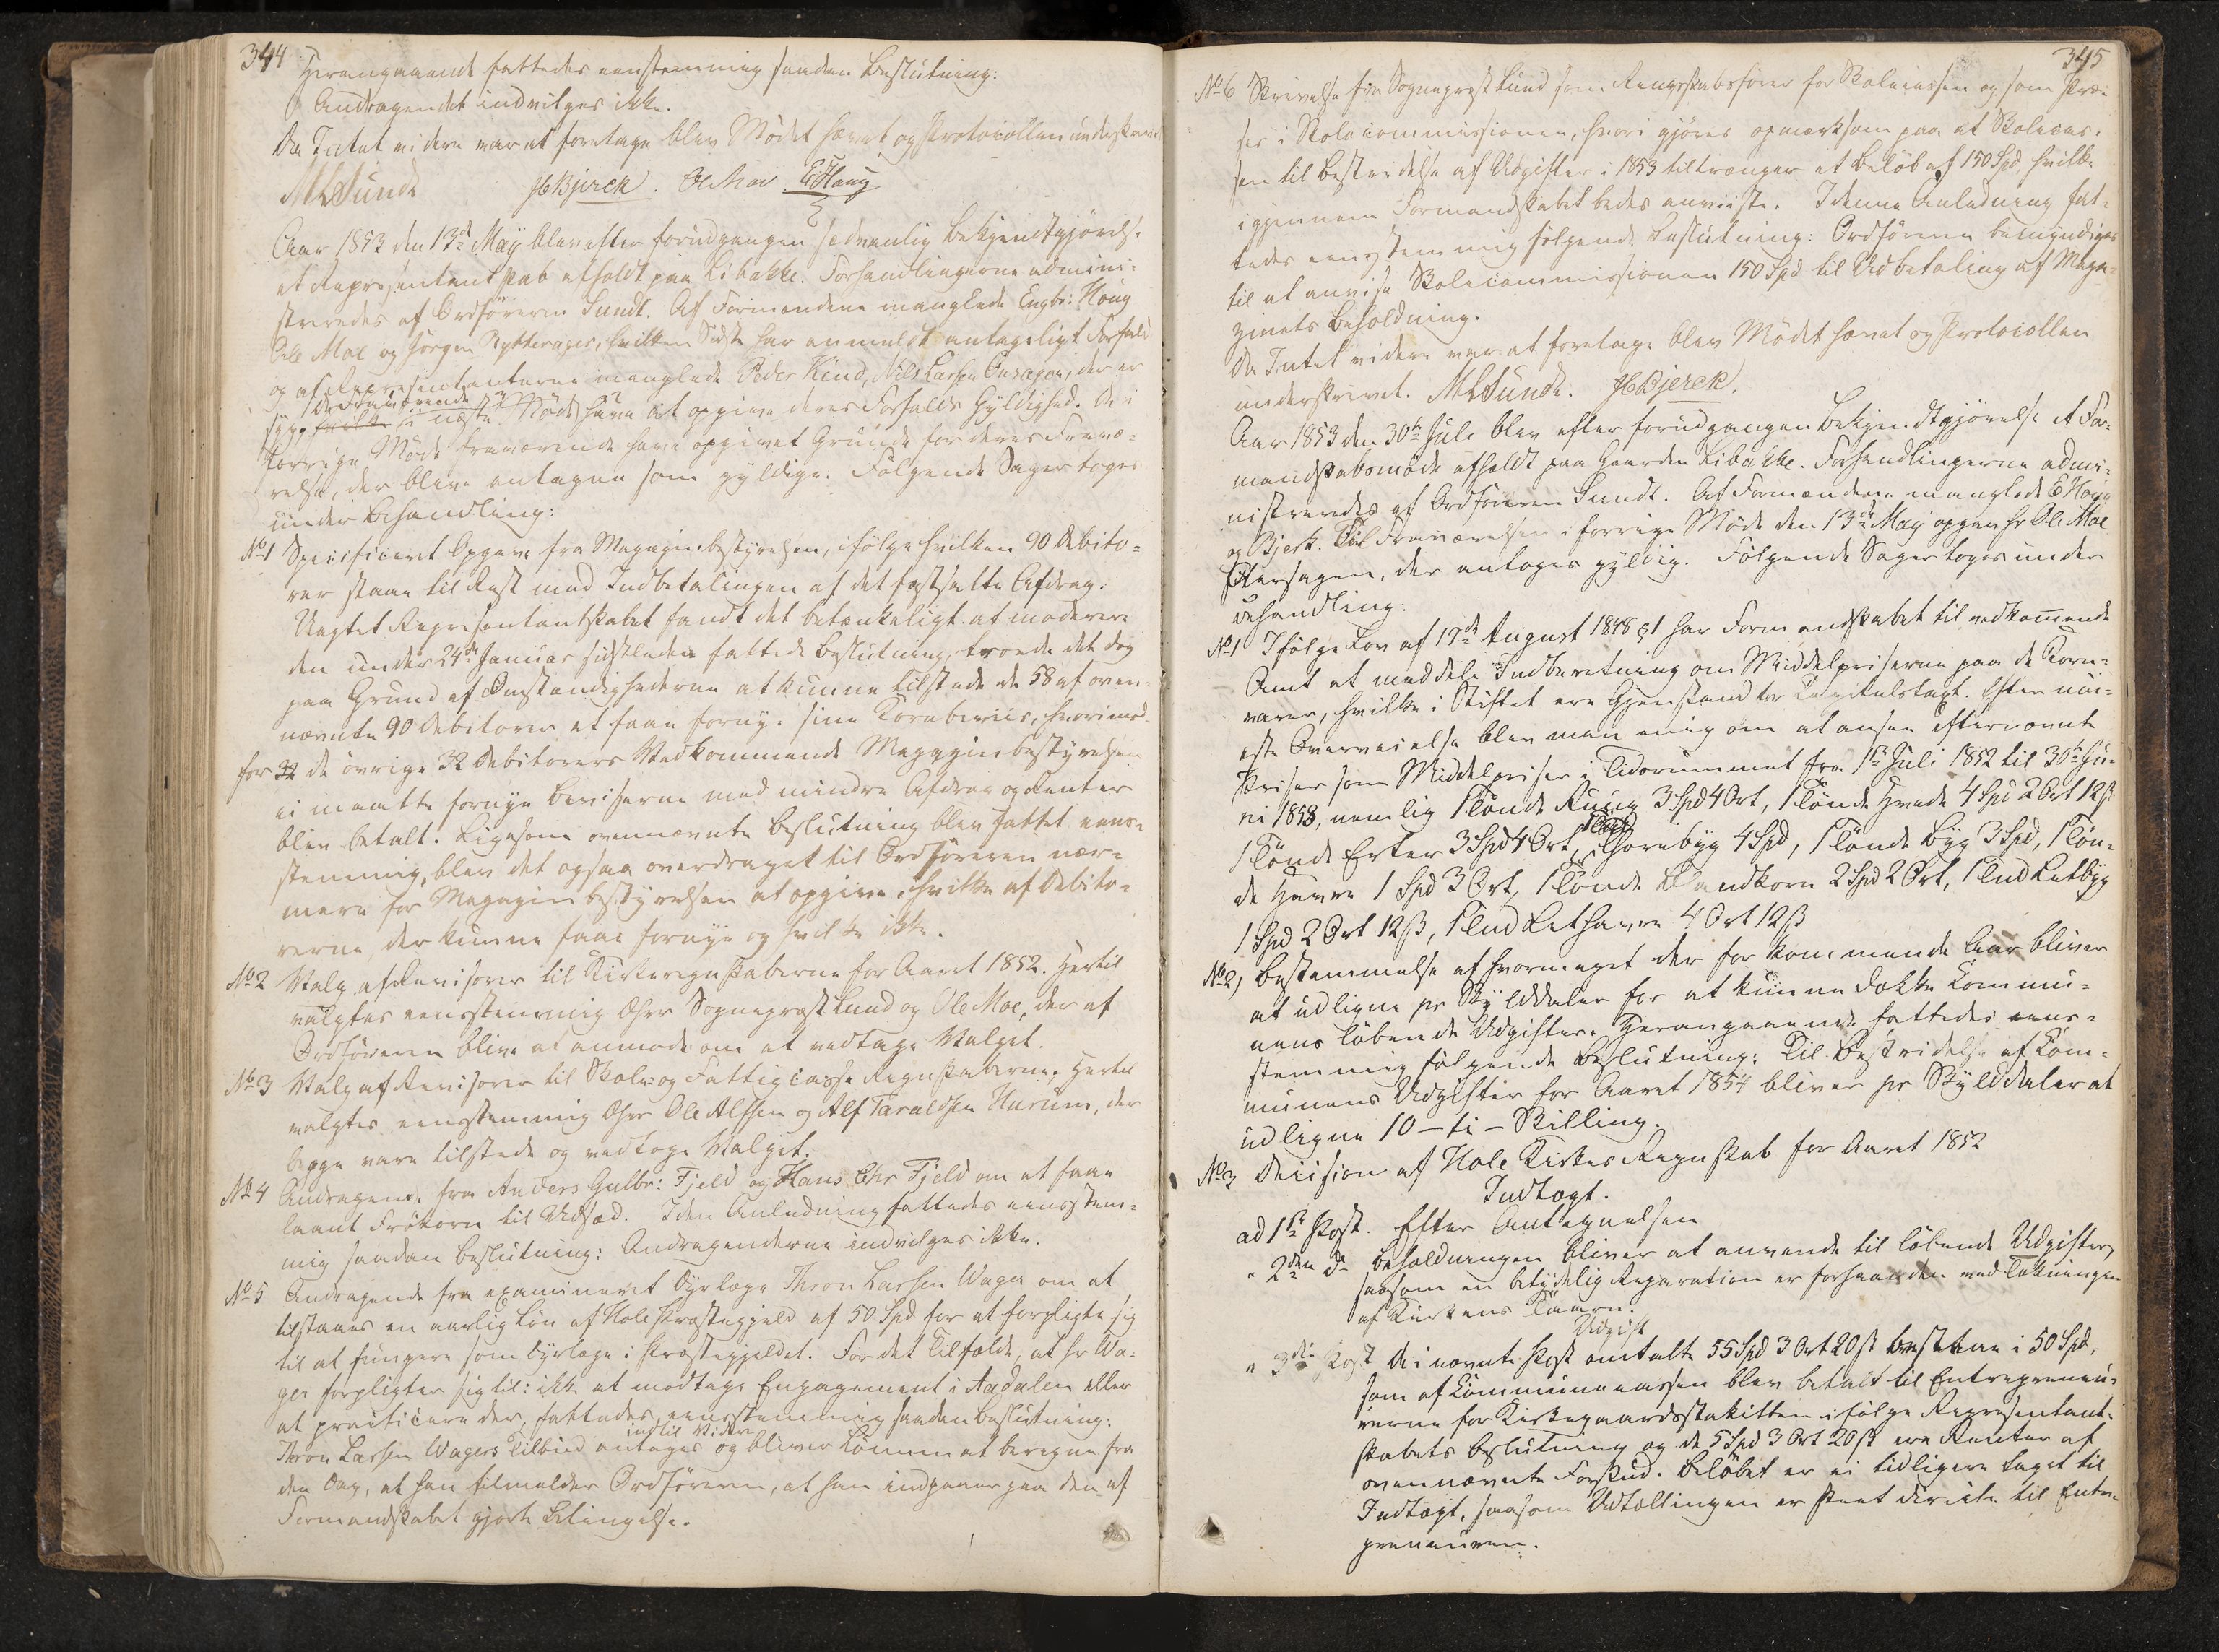 344
Herangaaende fattedes eenstemmig saadan Beslutning:
Andragendet indvilges ikke.
Da Intet videre var at foretage blev Mødet hævet og Protocollen underskreven
MLSundt HCBjerck. Ole Moe EHaug
Aar 1853 den 13de May blev efter forudgangen sedvanlig Bekjendtgjørelse
et Representantskab afholdt paa Libakke. Forhandlingerne admini-
streredes af Ordføreren Sundt. Af Formændene manglede Engbr: Houg
Ole Moe og Jørgen Rytterager, hvilken Sidste har anmeldt antageligt Forfald
og af Representanterne manglede Peder Kind, Nils Larsen Onsager, der er
syg. De Fraværende i næste Møde have at opgive deres Forfalds Gyldighed. De i
forrige Møde fraværende have opgivet Grunde for deres Fravæ-
relse, der bleve antagne som gyldige. Følgende Sager toges
under Behandling:
No 1 Specificeret Opgave fra Magazinbestyrelsen, ifølge hvilken 90 Debito-
rer staae til Rest med Indbetalingen af det fastsatte Afdrag.
Uagtet Representantskabet fandt det betænkeligt at moderere
den under 24de Januar sidstleden fattede Beslutning, troede det dog
paa Grund af Omstændighederne at kunne tilstede de 58 af oven-
nævnte 90 Debitorer at faae fornye sine Kornbeviis, hvorimod
for 32 de øvrige 32 Debitorers Vedkommende Magazinbestyrelsen
ei maatte fornye Beviserne med mindre Afdrag og Renter
blev betalt. Ligesom ovennævnte Beslutning blev fattet eens-
stemmig, blev det ogsaa overdraget til Ordføreren nær-
mere for Magazinbestyrelsen at opgive hvilke af Debito-
rerne, der kunne faae fornye og hvilke ikke.
No 2 Valg af Revisorer til Kirkeregnskaberne for Aaret 1852. Hertil
valgtes eensstemmig Dhrr Sognepræst Lund og Ole Moe, der af
Ordføreren blive at anmode om at vedtage Valget.
No 3 Valg af Revisorer til Skole- og Fattigcasse Regnskaberne. Hertil
valgtes eensstemmig Dhrr Ole Alfsen og Alf Taraldsen Hurum, der
begge vare tilstede og vedtoge Valget.
No 4 Andragende fra Anders Gulbr: Fjeld og Hans Chr Fjeld om at faae
laant Frøkorn til Udsæd. I den Anledning fattedes eensstem-
mig saadan Beslutning: Andragenderne indvilges ikke.
No 5 Andragende fra examineret Dyrlæge Thron Larsen Wager om at
tilstaaes en aarlig Løn af Hole Præstegjeld af 50 Spd for at forpligte sig
til at fungere som Dyrlæge i Præstegjeldet. For det Tilfælde, at Hr Wa-
ger forpligter sig til: ikke at modtage Engagement i Aadalen eller
at practicere der, fattedes eensstemmig saadan Beslutning:
Thron Larsen Wagers Tilbud indtil Videre antages og bliver Lønnen at beregne fra
den Dag, at han tilmelder Ordføreren, at han indgaaer paa den af
Formandskabet gjorte Betingelse.
345
No 6 Skrivelse fra Sognepræst Lund som Regnskabsfører for Skolecassen og som Præ-
ses i Skolecommissionen, hvori gjøres opmærksom paa at Skolecas-
sen til Bestridelse af Udgifter i 1853 tiltrænger et Beløb af 150 Spd, hvilke
igjennem Formandskabet bedes anviiste. I denne Anledning fat-
tedes eenstemmig følgende Beslutning: Ordføreren bemyndiges
til at anvise Skolecommissionen 150 Spd til Udbetaling af Maga-
zinets Beholdning.
Da Intet videre var at foretage blev Mødet hævet og Protocollen
underskrevet. MLSundt. HCBjerck.
Aar 1853 den 30te Juli blev efter forudgangen Bekjendtgjørelse et For-
mandskabsmøde afholdt paa Gaarden Libakke. Forhandlingerne admi-
nistreredes af Ordføreren Sundt. Af Formændene manglede E Houg
og Bjerk. Til Fraværelsen i forrige Møde den 13de May opgav Hr Ole Moe
Aarsagen, der antoges gyldig. Følgende Sager toges under
Behandling:
No 1 Ifølge Lov af 17de August 1848 § 1 har Formandskabet til vedkommende
Amt at meddele Indberetning om Middelpriserne paa de Korn-
varer, hvilke i Stiftet ere Gjenstand for Capitelstaxt. Efter nøi-
este Overveielse blev man enig om at ansee efternævnte
Priser som Middelpriser i Tidsrummet fra 1ste Juli 1852 til 30te Ju-
ni 1853, nemlig 1 Tønde Rug 3 Spd 4 Ort, 1 Tønde Hvede 4 Spd 2 Ort 12 ß
1 Tønde Erter 3 Spd 4 Ort, 1 Tønde Thorebyg 4 Spd, 1 Tønde Byg 3 Spd, 1 Tøn-
de Havre 1 Spd 3 Ort, 1 Tønde Blandkorn 2 Spd 2 Ort, 1 Tnd Letbyg
1 Spd 2 Ort 12 ß, 1 Tnd Lethavre 4 Ort 12 ß
No 2, Bestemmelse af hvormeget der for kommende Aar bliver
at udligne pr Skylddaler for at kunne dække Commu-
nens løbende Udgifter. Herangaaende fattedes eens-
stemmig følgende Beslutning: Til Bestridelse af Com-
munens Udgifter for Aaret 1854 bliver pr Skylddaler at
udligne 10 – ti – Skilling.
No 3 Decision af Hole Kirkes Regnskab for Aaret 1852
Indtægt.
ad 1ste Post. Efter Antegnelsen
" 2den Do Beholdningen bliver at anvende til løbende Udgifter,
saasom en betydelig Reparation er forhaanden med Tækningen
af Kirkens Taarn.
Udgift
" 3die Post De i nævnte Post omtalte 55 Spd 3 Ort 20 ß bestaae i 50 Spd,
som af Communecassen blev betalt til Entrepreneu-
rerne for Kirkegaardsstakittet ifølge Representant-
skabets Beslutning og de 5 Spd 3 Ort 20 ß ere Renter af
ovennævnte Forskud. Beløbet er ei tidligere taget til
Indtægt, saasom Udtællingen er skeet directe til Entre-
preneuren.